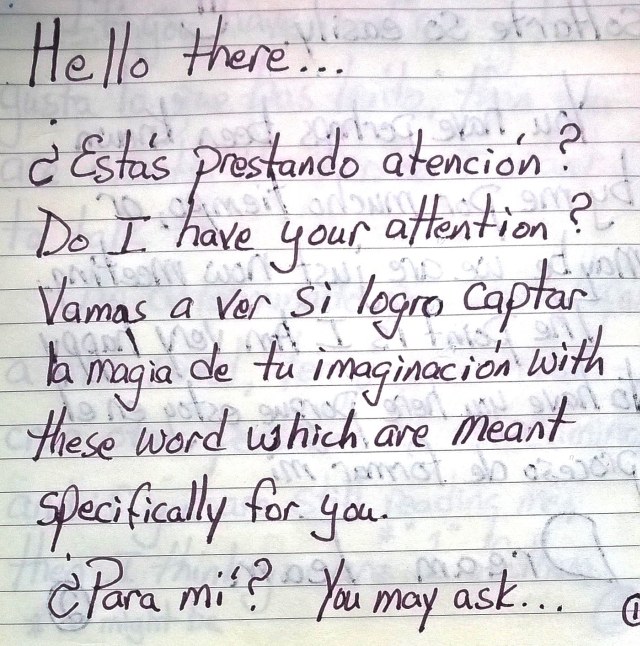 Hello there...
¿Estás prestando atención?
Do I have your attention?
Vamas a ver si logro captar
la magia de tu imaginación with
these word which are meant
specifically for you.
¿Para mí? You may ask...
①